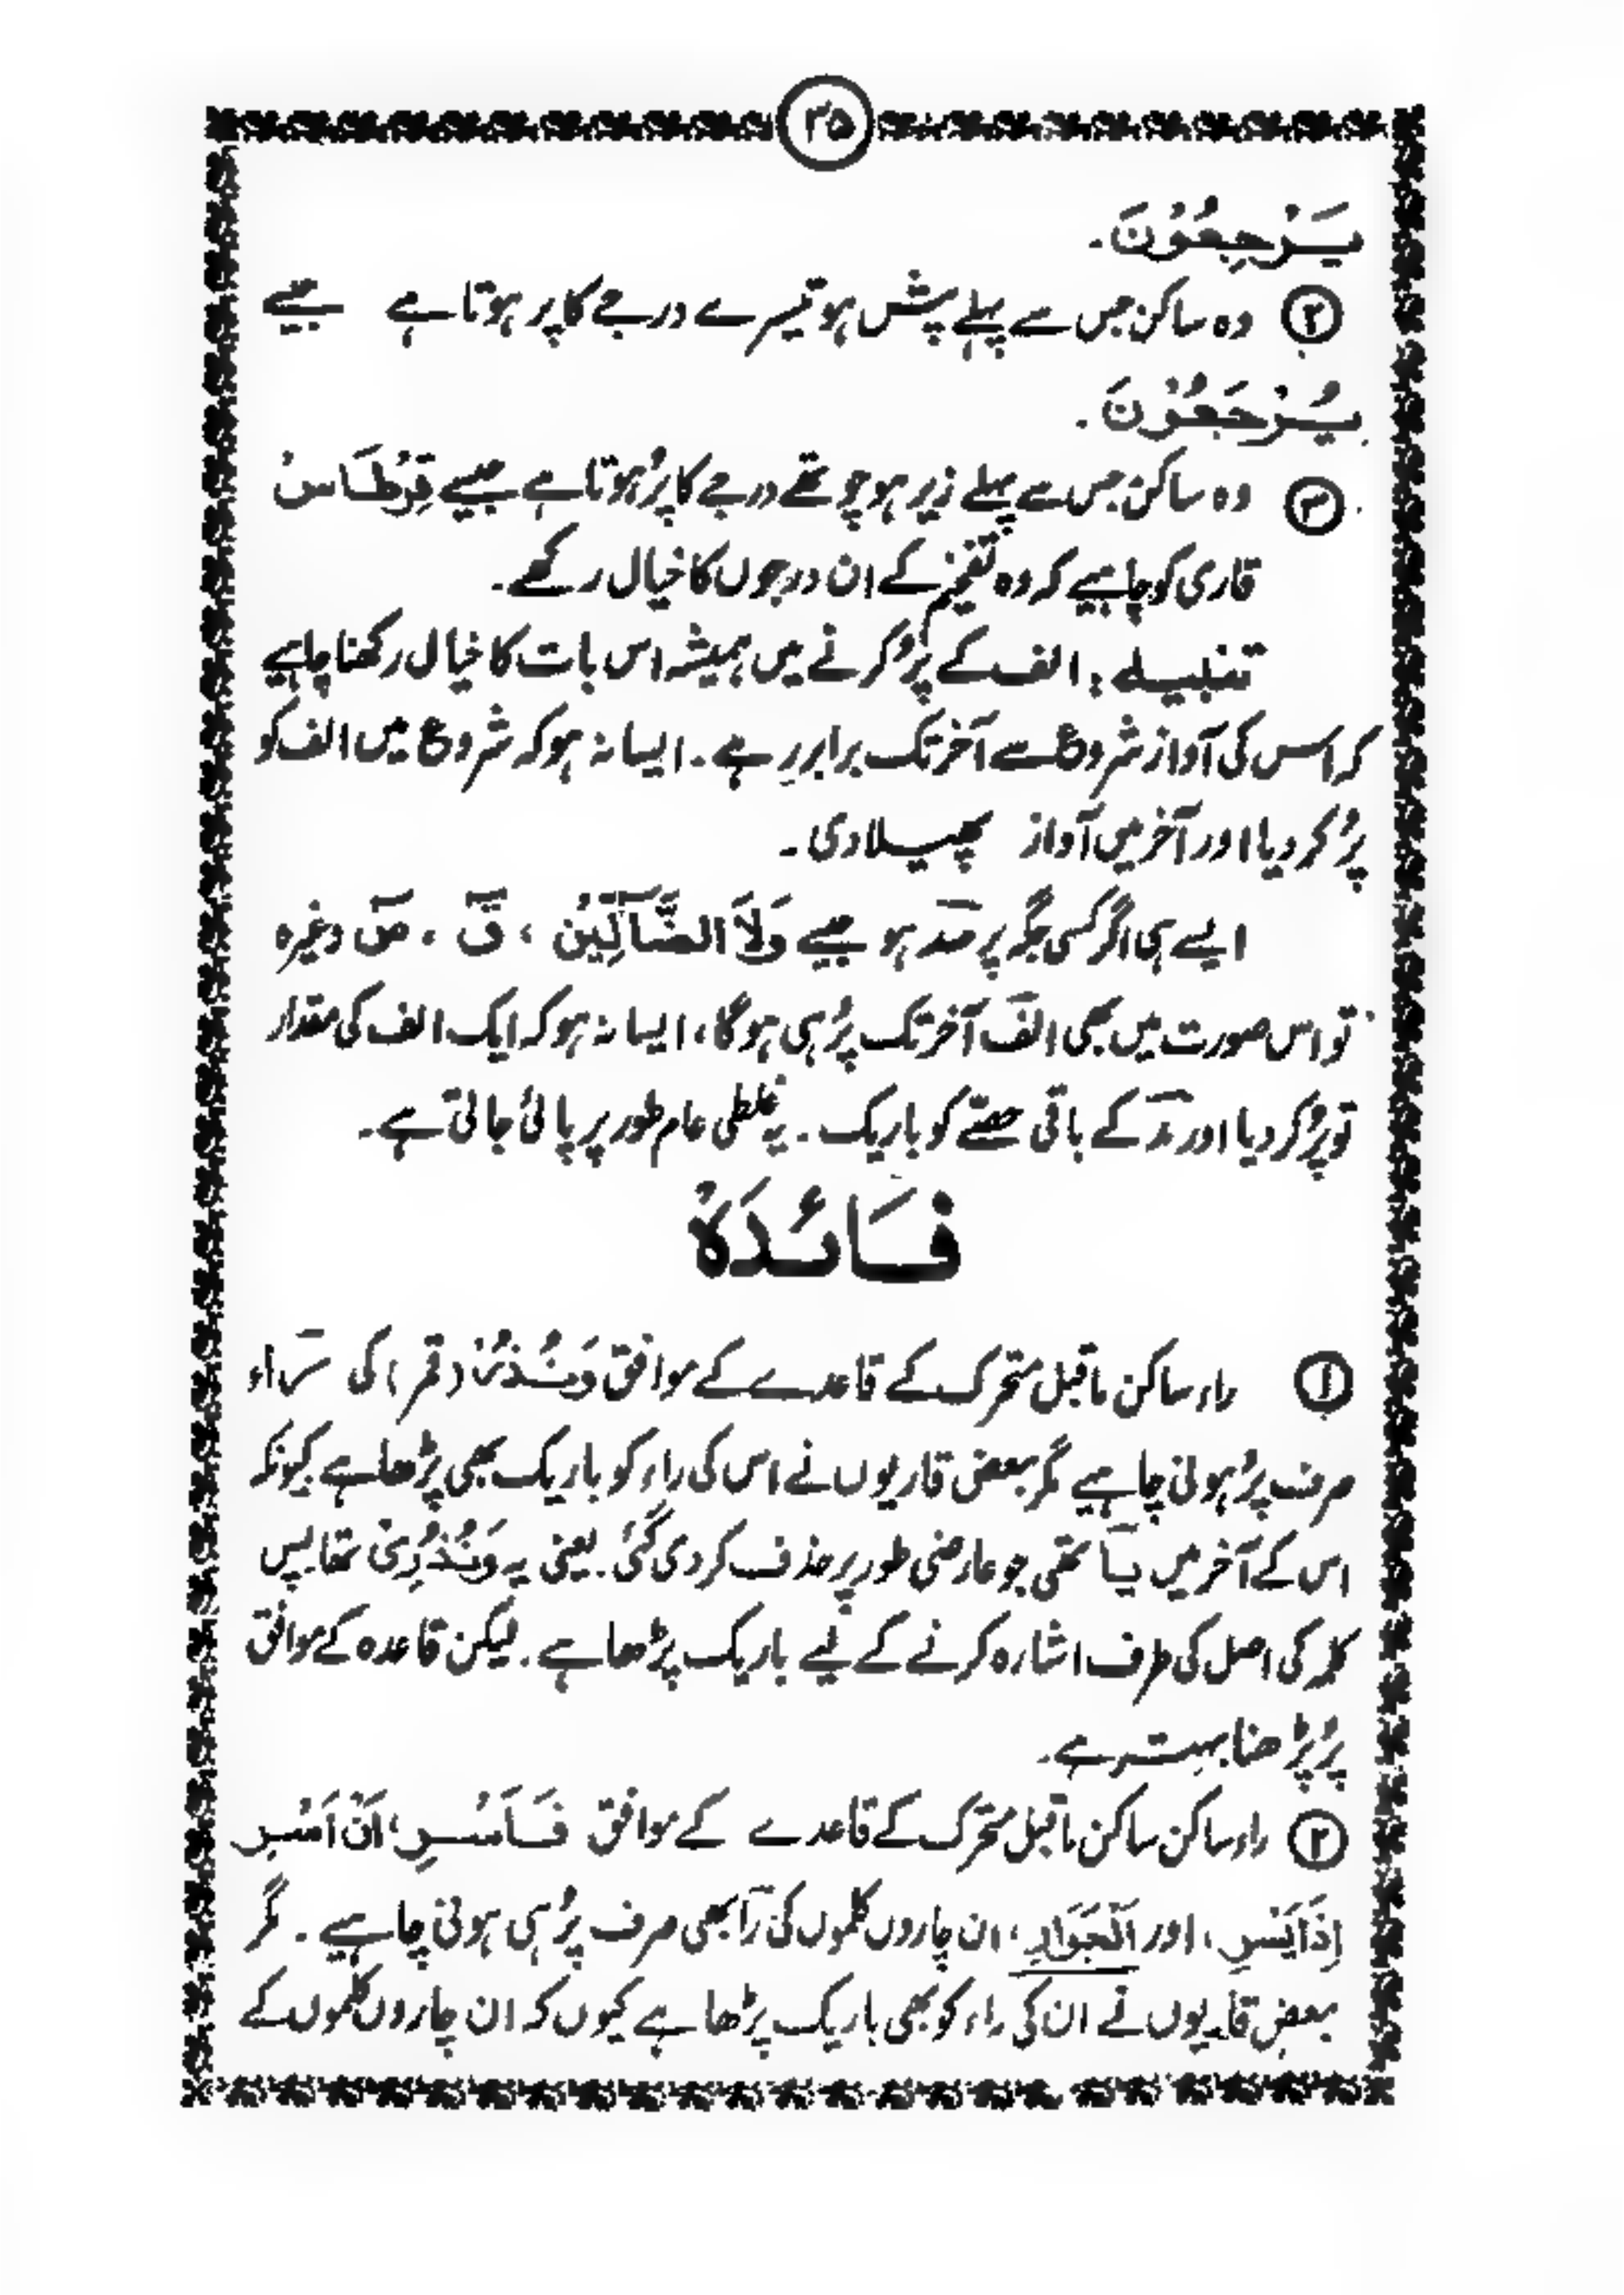 ۳۵
یَرْجِعُوْنَ۔
③ وہ ساکن جس سے پہلے پیش ہو تیسرے درجے کا پر ہوتا ہے جیسے
یُرْجَعُوْنَ۔
④ وہ ساکن جس سے پہلے زیر ہو چوتھے درجے کا پُر ہوتا ہے جیسے قِرْطَاسٌ
قاری کو چاہیے کہ وہ تفخیم کے ان درجوں کا خیال رکھے۔
تنبیہ : الف کے پُر کرنے میں ہمیشہ اس بات کا خیال رکھنا چاہیے
کہ اس کی آواز شروع سے آخر تک برابر رہے۔ ایسا نہ ہو کہ شروع میں الف کو
پُر کر دیا اور آخر میں آواز پھیلا دی۔
ایسے ہی اگر کسی جگہ پر مد ہو جیسے وَلَا الضَّآلِّیْنَ ، قٓ ، صٓ وغیرہ
تو اس صورت میں بھی الف آخر تک پُر ہی ہو گا، ایسا نہ ہو کہ ایک الف کی مقدار
تو پُر کر دیا اور مد کے باقی حصّے کو باریک۔ یہ غلطی عام طور پر پائی جاتی ہے۔
فَائدَہْ
① راء ساکن ماقبل متحرک کے قاعدے کے موافق وَنُذُرْ (قمر) کی راء
صرف پُر ہونی چاہیے مگر بعض قاریوں نے اس کی راء کو باریک بھی پڑھا ہے کیونکہ
اس کے آخر میں یآ تھی جو عارضی طور پر حذف کر دی گئی۔ یعنی یہ وَنُذُرِیْ تھا پس
کلمہ کی اصل کی طرف اشارہ کرنے کے لیے باریک پڑھا ہے۔ لیکن قاعدہ کے موافق
پُر پڑھنا بہتر ہے۔
② راء ساکن ساکن ماقبل متحرک کے قاعدے کے موافق فَاَسْرِ، اَنْ اَسْرِ
اِذَا یَسْرِ، اور اَلْجَوَارِ، ان چاروں کلموں کی رآ بھی صرف پُر ہی ہونی چاہیے۔ مگر
بعض قاریوں نے ان کی راء کو بھی باریک پڑھا ہے کیوں کہ ان چاروں کلموں کے